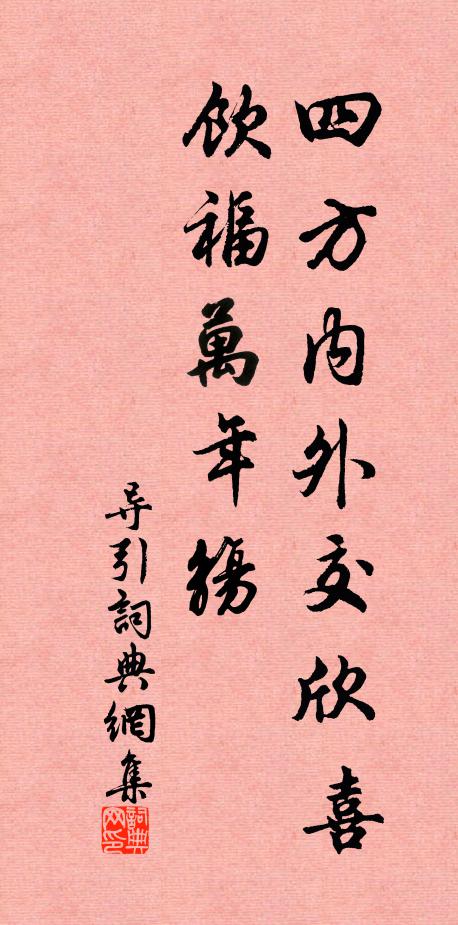 四方内外交欣喜
飲福萬年觴
导引詞典網集
詞典网印